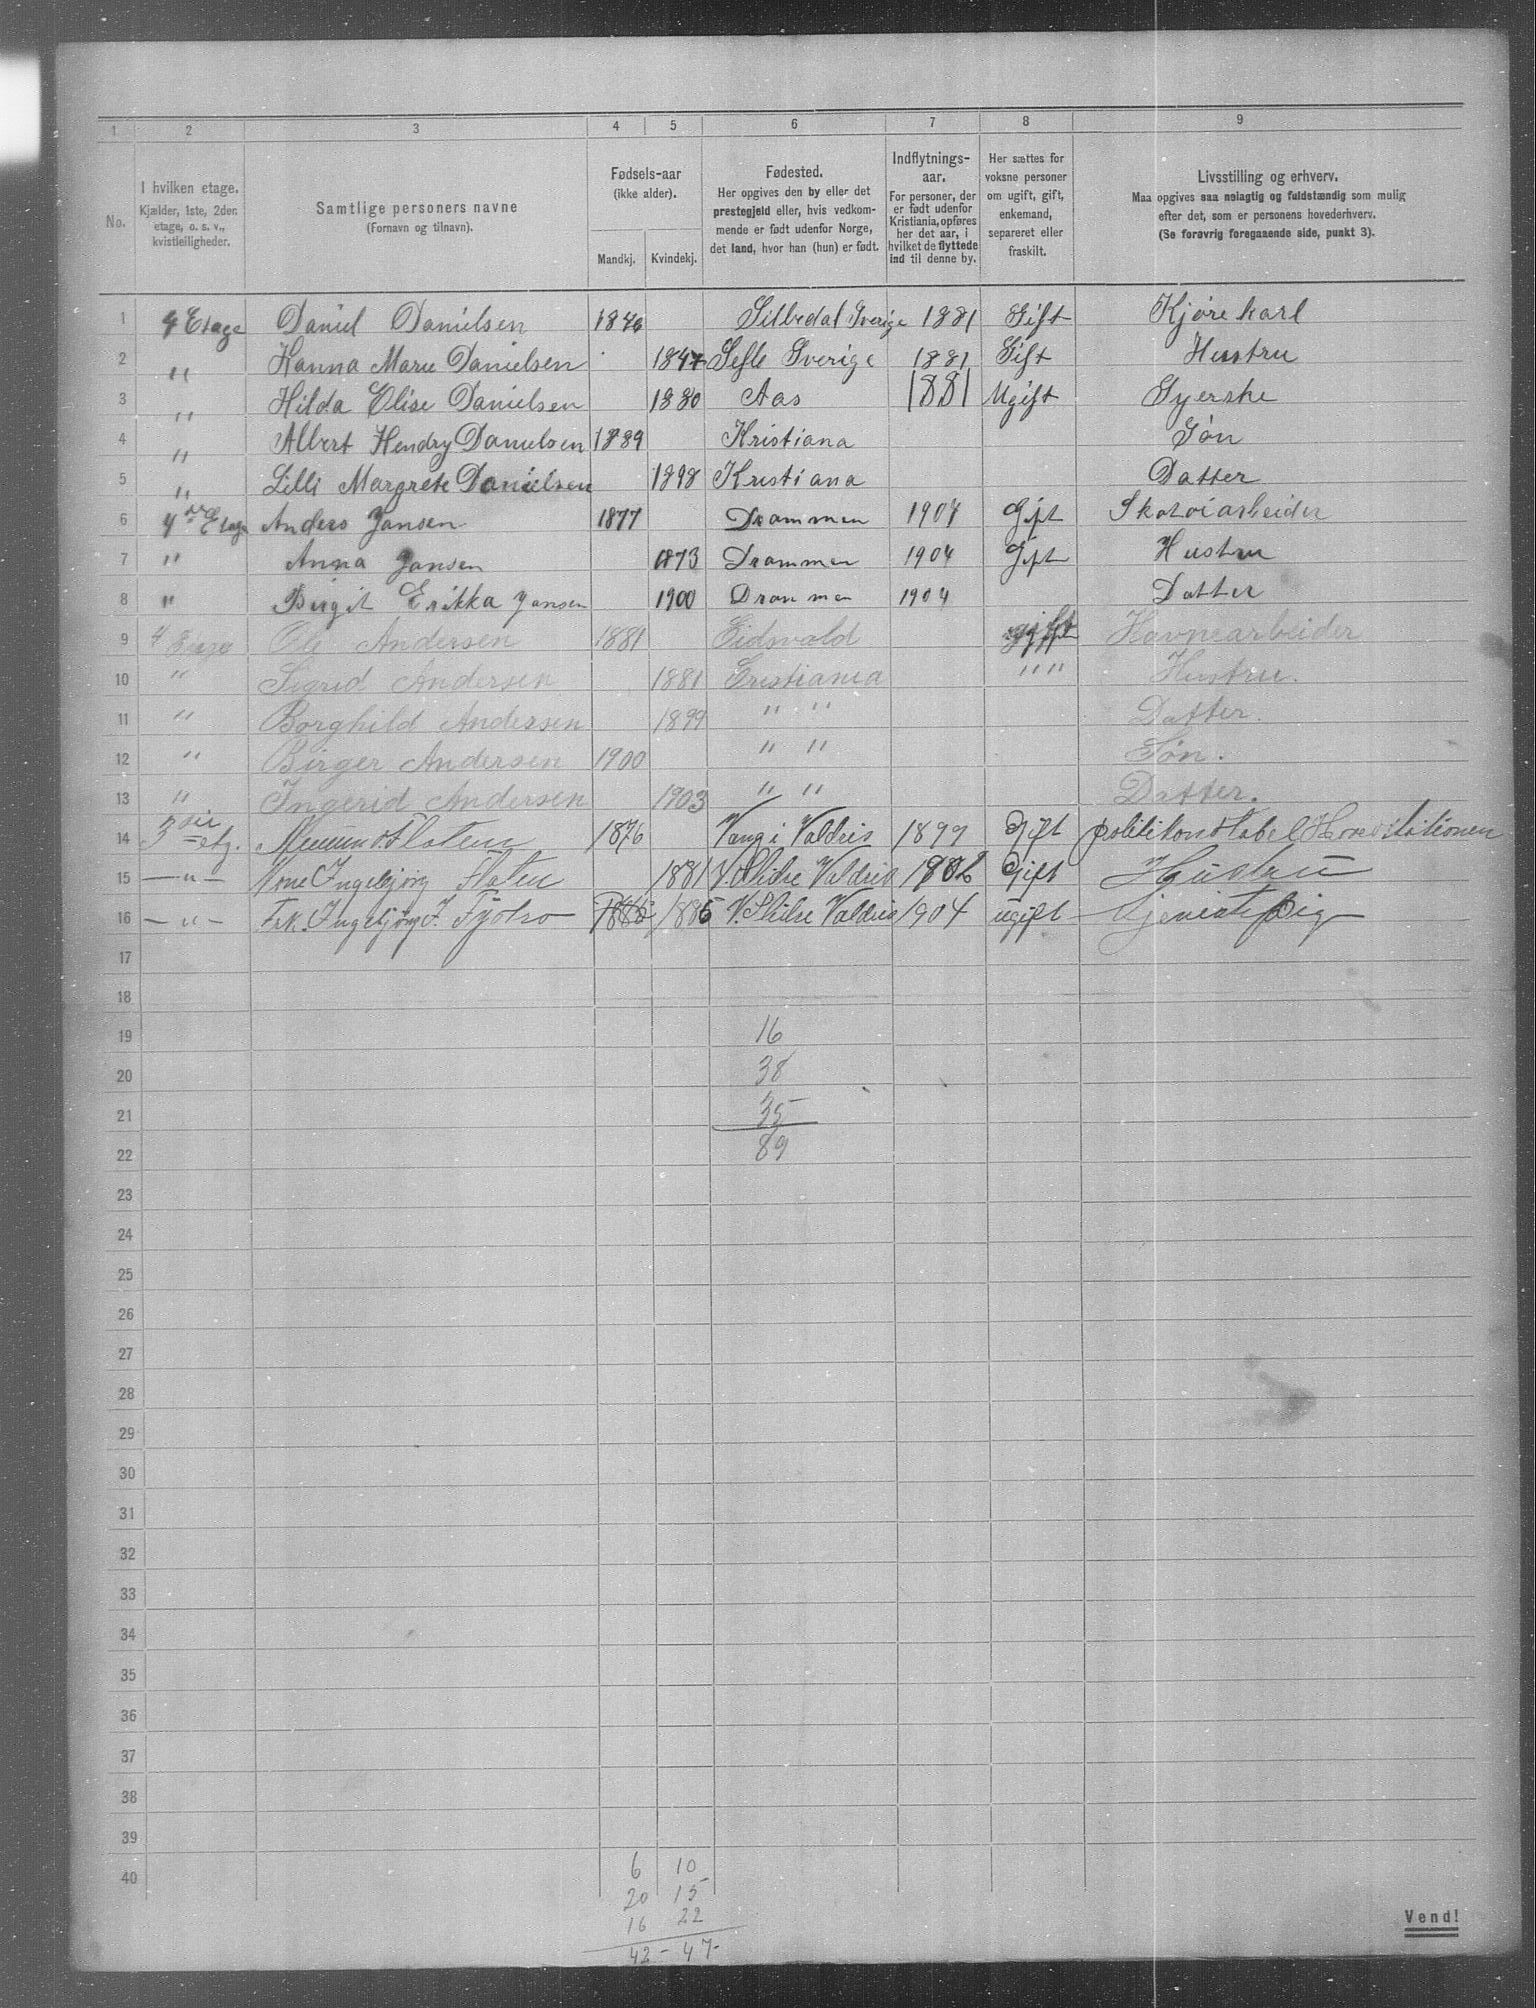 1 2 3 4 5 6 7 8 9
No.
I hvilken etage.
Kjælder, 1ste, 2den
etage, o. s. v.,
kvistleiligheder.
Samtlige personers navne
(Fornavn og tilnavn).
Fødsels-aar
(ikke alder).
Mandkj. Kvindekj.
Fødested.
Her opgives den by eller det
prestegjeld eller, hvis vedkom-
mende er født udenfor Norge,
det land, hvor han (hun) er født.
Indflytnings-
aar.
For personer, der
er født udenfor
Kristiania, opføres
her det aar, i
hvilket de flyttede
ind til denne by.
Her sættes for
voksne personer
om ugift, gift,
enkemand,
separeret eller
fraskilt.
Livsstilling og erhverv.
Maa opgives saa nøiagtig og fuldstændig som mulig
efter det, som er personens hovederhverv.
(Se forøvrig foregaaende side, punkt 3).
1 4 Etage Daniel Danielsen 1846 Silbedal Sverige 1881 Gift Kjørekarl
2 " Hanna Marie Danielsen 1847 Sefle Sverige 1881 Gift Hustru
3 " Hilda Elise Danielsen 1880 Aas 1881 Ugift Syerske
4 " Albert Hendry Danielsen 1889 Kristiana Søn
5 " Lilli Margrete Danielsen 1898 Kristiana Datter
6 4de Etage Anders Jansen 1877 Drammen 1904 Gift Skotøiarbeider
7 " Anna Jansen 1873 Drammen 1904 Gift Hustru
8 " Birgit Erikka Jansen 1900 Drammen 1904 Datter
9 4 Etage Ole Andersen 1881 Eidsvold gift Havnearbeider
10 " Sigrid Andersen 1881 Cristiania " " Hustru.
11 " Borghild Andersen 1899 " " Datter.
12 " Birger Andersen 1900 " " Søn.
13 " Ingerid Andersen 1903 " " Datter.
14 3die etg. Fløten 1876 Vang i Valdris 1899 Gift politikonstabel
15 — " — Ingebjørg Fløten 1881 V. Slidre Valdris 1902 Gift Hustru
16 — " — Frk. Ingebjørg J. 1885 1885 V. Slidre Valdris 1904 ugift Tjenestepige
17
18
19 16
20 38
21 35
22 89
23
24
25
26
27
28
29
30
31
32
33
34
35
36
37
38
39
40 6 10
20 15
16 22
42 - 47-
Vend!